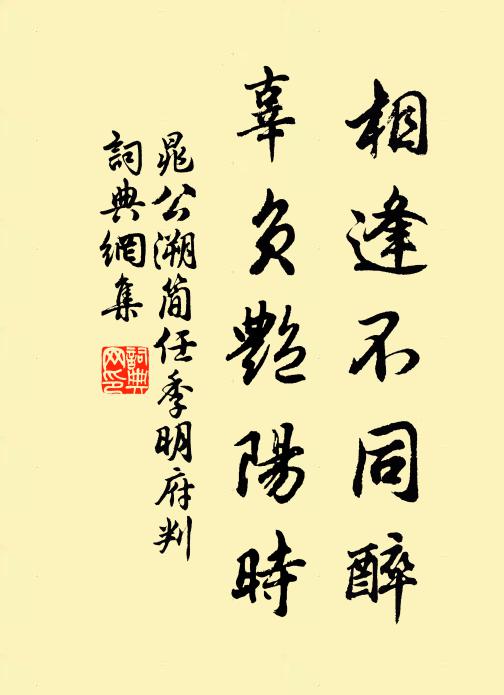 相逢不同醉
辜負艷陽時
晁公溯簡任季明府判
詞典網集
詞典
网印